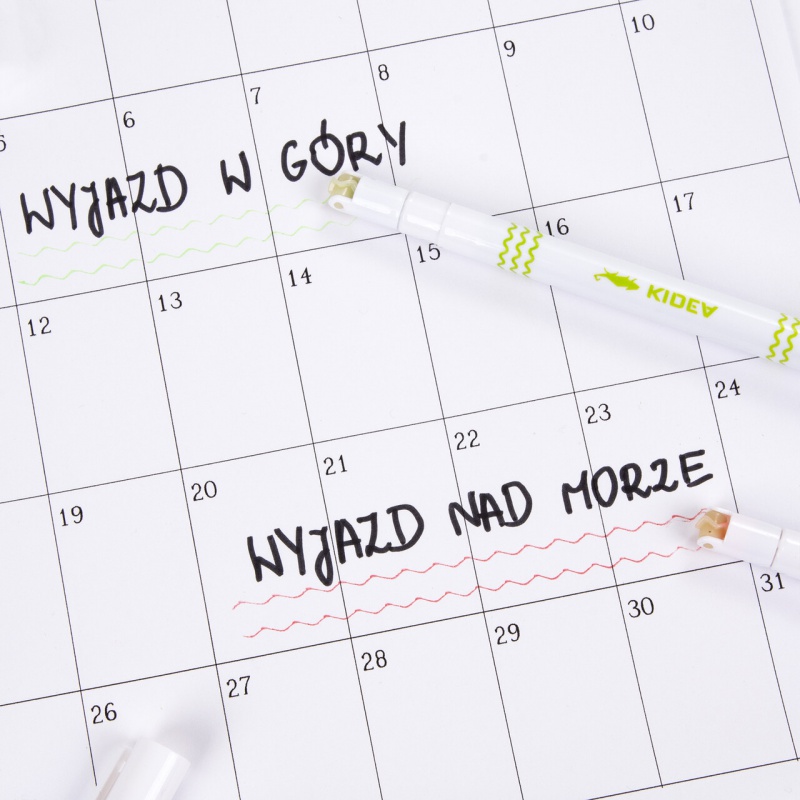 5 6 7 8 9 10
WYJAZD W GÓRY
KIDEA
12 13 14 15 16 17
19 20 21 22 23 24
WYJAZD NAD MORZE
26 27 28 29 30 31